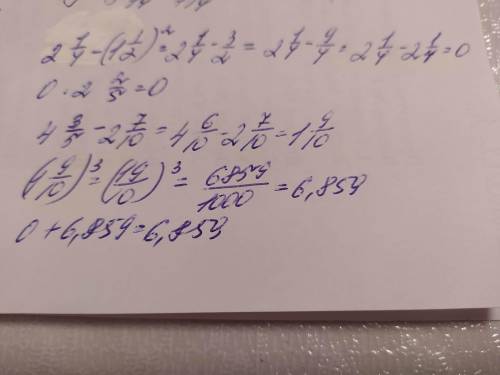 2 1/4 - (1 1/2)² = 2 1/4 - 3/2 = 2 1/4 - 9/4 = 2 1/4 - 2 1/4 = 0
0 · 2 2/5 = 0
4 3/5 - 2 7/10 = 4 6/10 - 2 7/10 = 1 9/10
(1 9/10)³ = (19/10)³ = 6859/1000 = 6,859
0 + 6,859 = 6,859